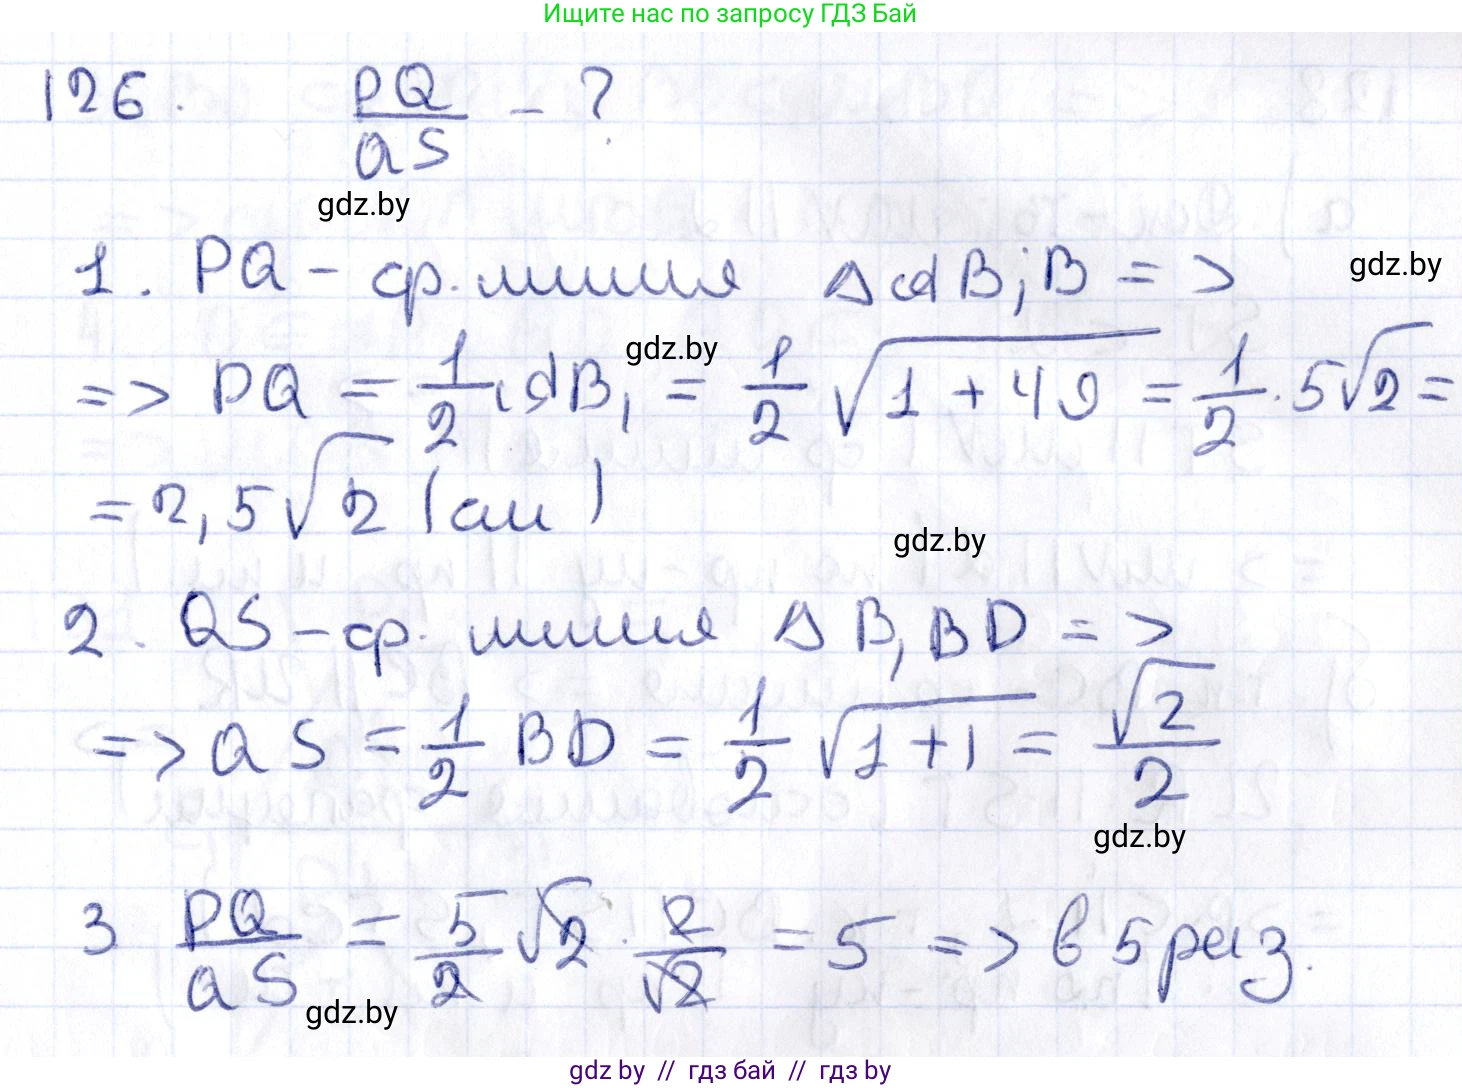 Ищите нас по запросу ГДЗ Бай
126. PQ/QS - ?
gdz.by
1. PQ - ср. линия Δ AB₁B =>
gdz.by
=> PQ = 1/2 AB₁ = 1/2 √(1 + 49) = 1/2 · 5√2 =
gdz.by
= 2,5√2 (см)
gdz.by
2. QS - ср. линия Δ B₁BD =>
=> QS = 1/2 BD = 1/2 √(1+1) = √2/2
gdz.by
3 PQ/QS = 5/2 √2 · 2/√2 = 5 => в 5 раз.
gdz.by
gdz by // гдз бай // гдз by